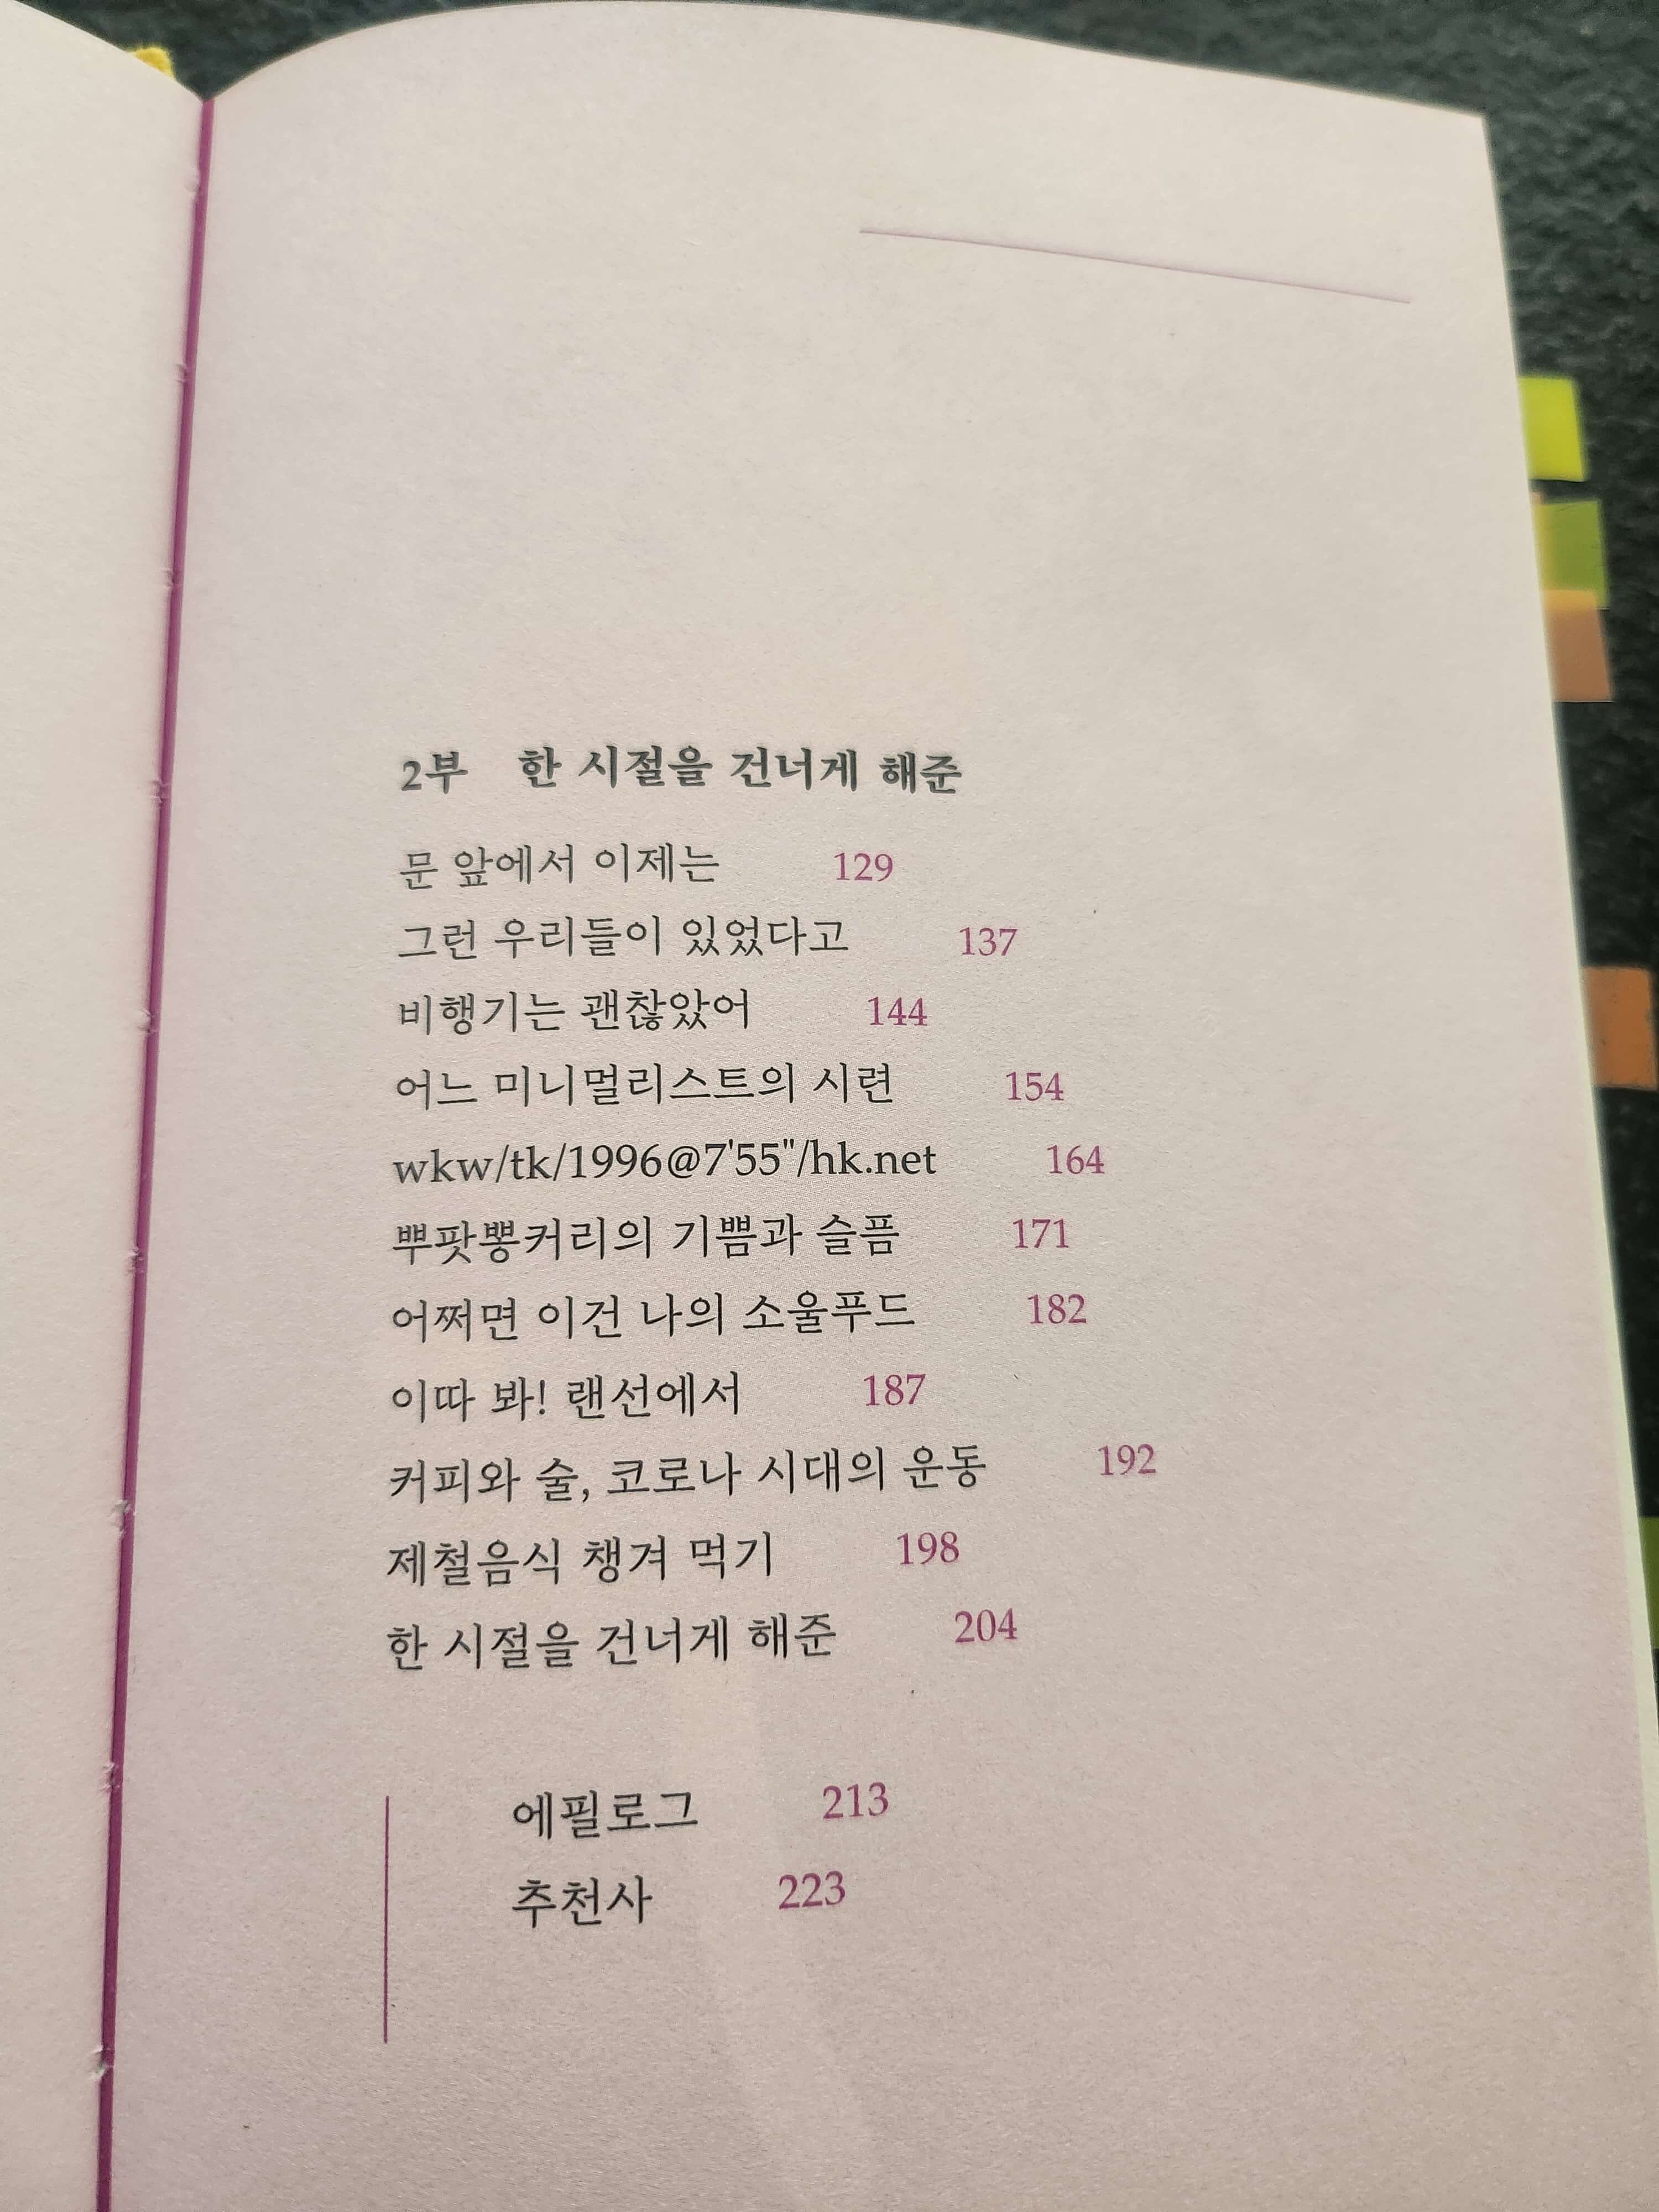 2부 한 시절을 건너게 해준
문 앞에서 이제는 129
그런 우리들이 있었다고 137
비행기는 괜찮았어 144
어느 미니멀리스트의 시련 154
wkw/tk/1996@7'55"/hk.net 164
뿌팟뽕커리의 기쁨과 슬픔 171
어쩌면 이건 나의 소울푸드 182
이따 봐! 랜선에서 187
커피와 술, 코로나 시대의 운동 192
제철음식 챙겨 먹기 198
한 시절을 건너게 해준 204
에필로그 213
추천사 223